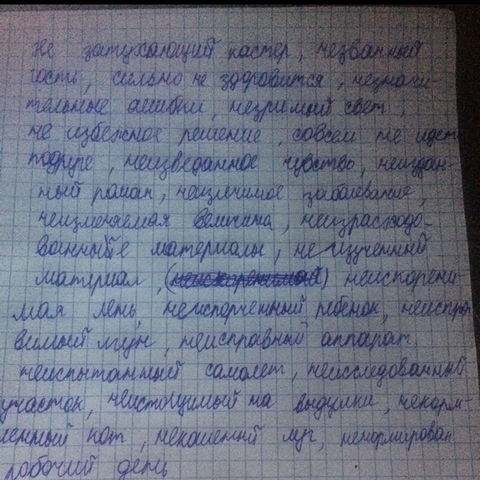 не затухающий кастер, незванный
гость, сильно не здоровится, незначи-
тельные ошибки, незримый свет,
не избежное решение, совсем не идет
подруге, неизведанное чувство, неиздан-
ный роман, неизлечимое заболевание,
неизменяемая величина, неизрасходо-
ванные материалы, не изученный
материал, неискорени-
мая лень, неиспорченный ребенок, неиспра-
вимый лгун, неисправный аппарат
неиспытанный самолет, неисследованный
участок, неистощимый на выдумки, некорм-
ленный кот, некошенный луг, ненормирован
рабочий день